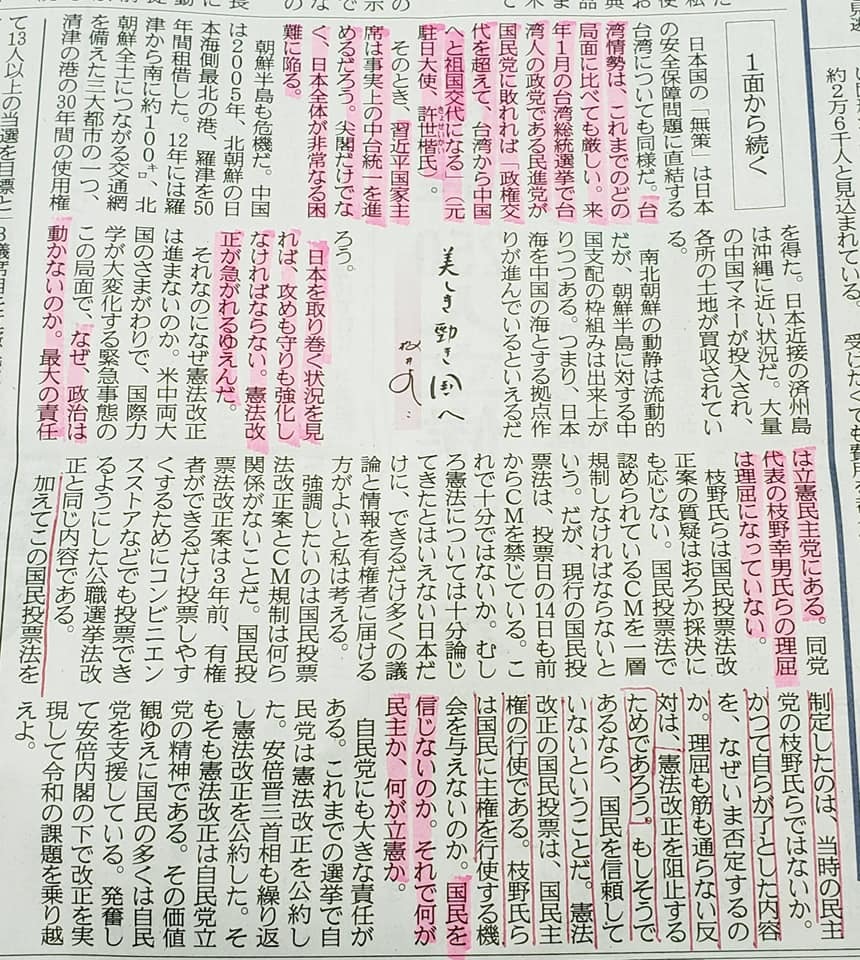 約２万６千人と見込まれている。
１面から続く
日本国の「無策」は日本
の安全保障問題に直結する
台湾についても同様だ。台
湾情勢は、これまでのどの
局面に比べても厳しい。来
年１月の台湾総統選挙で台
湾人の政党である民進党が
国民党に敗れれば「政権交
代を超えて、台湾から中国
へと祖国交代になる」（元
駐日大使、許世楷氏）。
そのとき、習近平国家主
席は事実上の中台統一を進
めるだろう。尖閣だけでな
く、日本全体が非常なる困
難に陥る。
朝鮮半島も危機だ。中国
は２００５年、北朝鮮の日
本海側最北の港、羅津を50
年間租借した。12年には羅
津から南に約１００㌔、北
朝鮮全土につながる交通網
を備えた三大都市の一つ、
清津の港の30年間の使用権
を得た。日本近接の済州島
は沖縄に近い状況だ。大量
の中国マネーが投入され、
各所の土地が買収されてい
る。
南北朝鮮の動静は流動的
だが、朝鮮半島に対する中
国支配の枠組みは出来上が
りつつある。つまり、日本
海を中国の海とする拠点作
りが進んでいるといえるだ
ろう。
美しき勁き国へ
日本を取り巻く状況を見
れば、攻めも守りも強化し
なければならない。憲法改
正が急がれるゆえんだ。
それなのになぜ憲法改正
は進まないのか。米中両大
国のさまがわりで、国際力
学が大変化する緊急事態の
この局面で、なぜ、政治は
動かないのか。最大の責任
は立憲民主党にある。同党
代表の枝野幸男氏らの理屈
は理屈になっていない。
枝野氏らは国民投票法改
正案の質疑はおろか採決に
も応じない。国民投票法で
認められているCMを一層
規制しなければならないと
いう。だが、現行の国民投
票法は、投票日の14日も前
からCMを禁じている。こ
れで十分ではないか。むし
ろ憲法については十分論じ
てきたとはいえない日本だ
けに、できるだけ多くの議
論と情報を有権者に届ける
方がよいと私は考える。
強調したいのは国民投票
法改正案とCM規制は何ら
関係がないことだ。国民投
票法改正案は３年前、有権
者ができるだけ投票しやす
くするためにコンビニエン
スストアなどでも投票でき
るようにした公職選挙法改
正と同じ内容である。
加えてこの国民投票法を
制定したのは、当時の民主
党の枝野氏らではないか。
かつて自らが了とした内容
を、なぜいま否定するの
か。理屈も筋も通らない反
対は、憲法改正を阻止する
ためであろう。もしそうで
あるなら、国民を信頼して
いないということだ。憲法
改正の国民投票は、国民主
権の行使である。枝野氏ら
は国民に主権を行使する機
会を与えないのか。国民を
信じないのか。それで何が
民主か、何が立憲か。
自民党にも大きな責任が
ある。これまでの選挙で自
民党は憲法改正を公約し
た。安倍晋三首相も繰り返
し憲法改正を公約した。そ
もそも憲法改正は自民党立
党の精神である。その価値
観ゆえに国民の多くは自民
党を支援している。発奮し
て安倍内閣の下で改正を実
現して令和の課題を乗り越
えよ。
て13人以上の当選を目標と